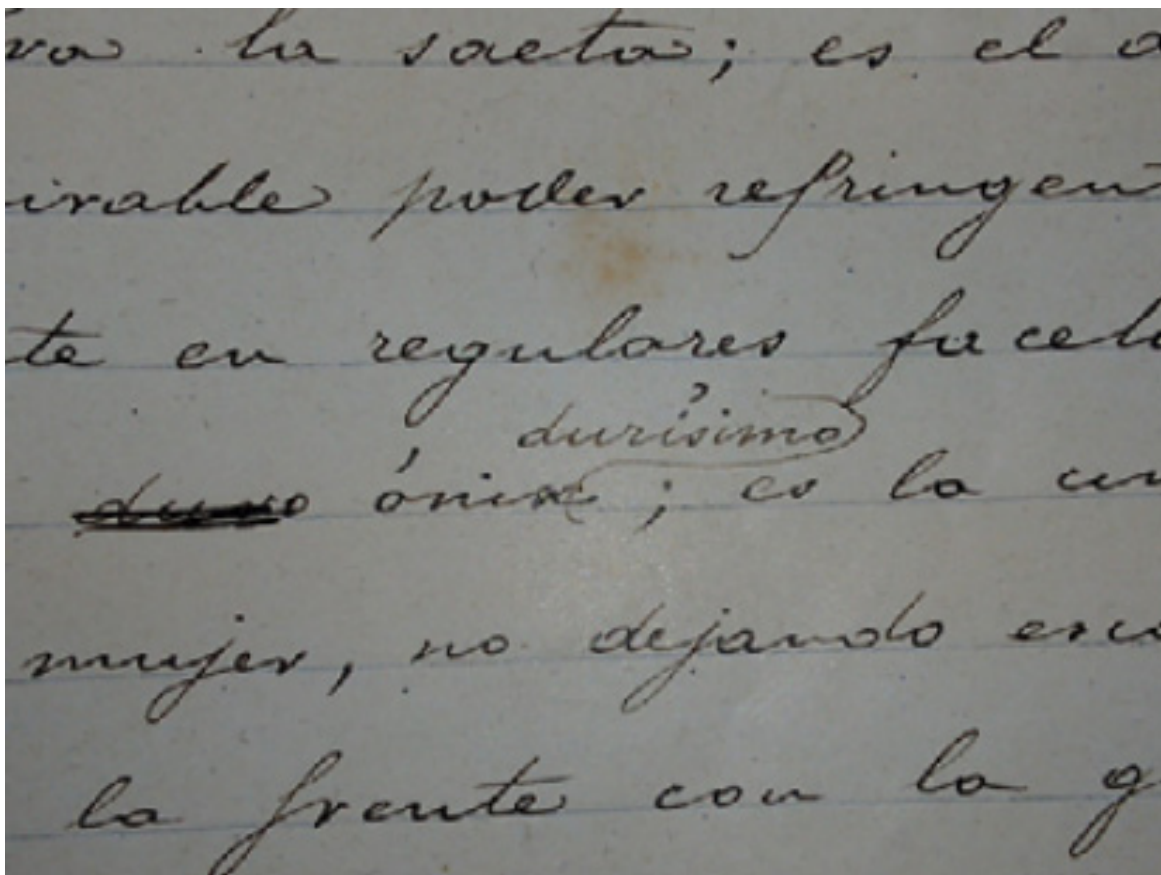 va la saeta; es el a
irable poder refringent
te en regulares facet
durísimo
duro ónix; es la un
mujer, no dejando esca
la frente con la g